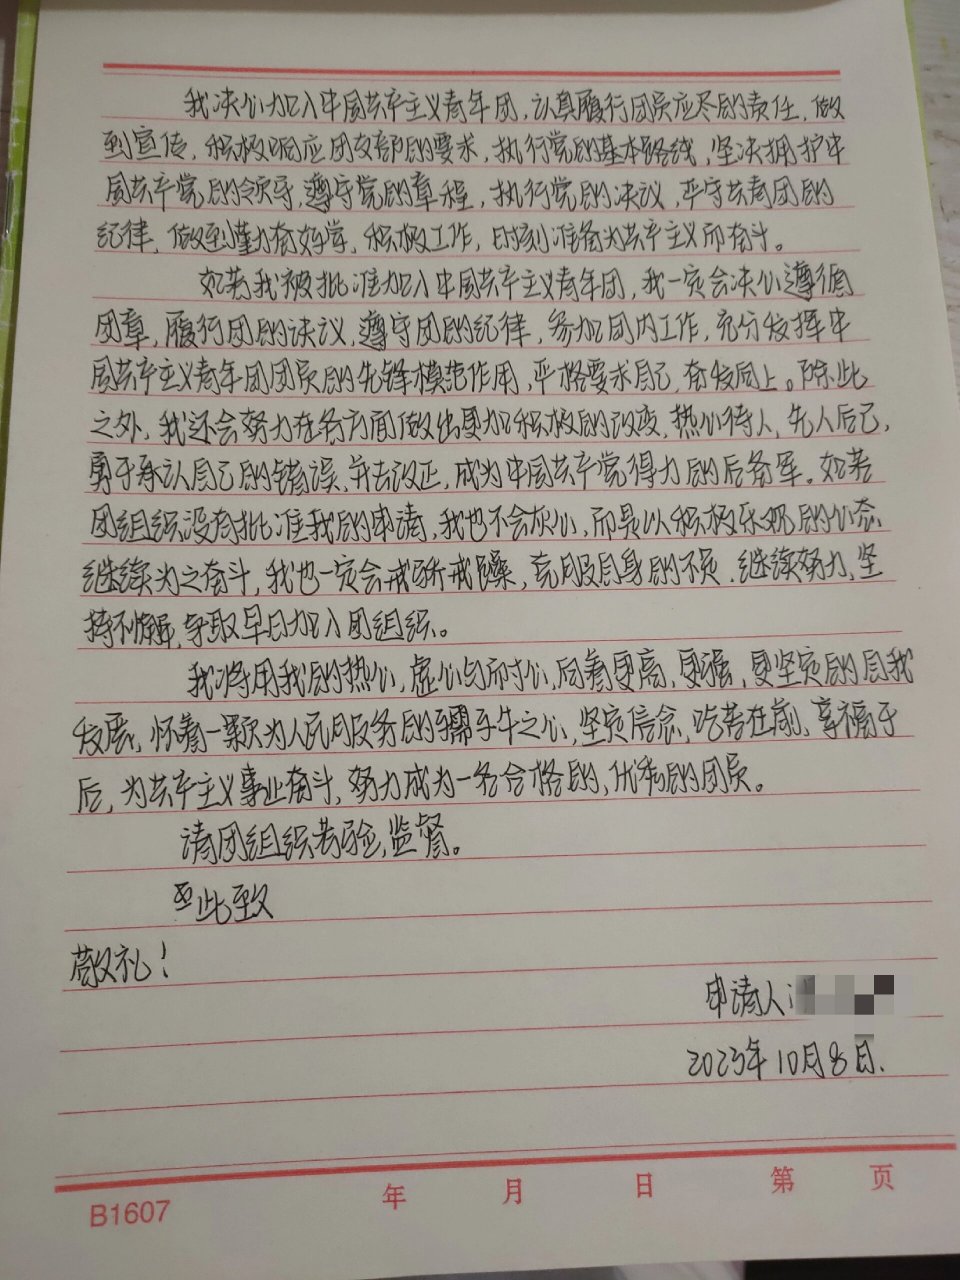 我决心加入中国共产主义青年团，认真履行团员应尽的责任，做
到宣传，积极响应团支部的要求，执行党的基本路线，坚决拥护中
国共产党的领导，遵守党的章程，执行党的决议，严守共青团的
纪律，做到勤奋好学，积极工作，时刻准备为共产主义而奋斗。
如若我被批准加入中国共产主义青年团，我一定会决心遵循
团章，履行团的决议，遵守团的纪律，参加团内工作，充分发挥中
国共产主义青年团团员的先锋模范作用，严格要求自己，奋发向上。除此
之外，我还会努力在各方面做出更加积极的改变，热心待人，先人后己，
勇于承认自己的错误，并去改正，成为中国共产党得力的后备军。如若
团组织没有批准我的申请，我也不会灰心，而是以积极乐观的心态
继续为之奋斗，我也一定会戒骄戒躁，克服自身的不足，继续努力，坚
持不懈，争取早日加入团组织。
我将用我的热心，虚心向前讨心，向着更高，更强，更坚定的自我
发展，怀着一颗为人民服务的孺子牛之心，坚定信念，吃苦在前，享福于
后，为共产主义事业奋斗，努力成为一名合格的，优秀的团员。
请团组织考验，监督。
至此致
敬礼！
申请人
2023年10月8日.
B1607 年 月 日 第 页